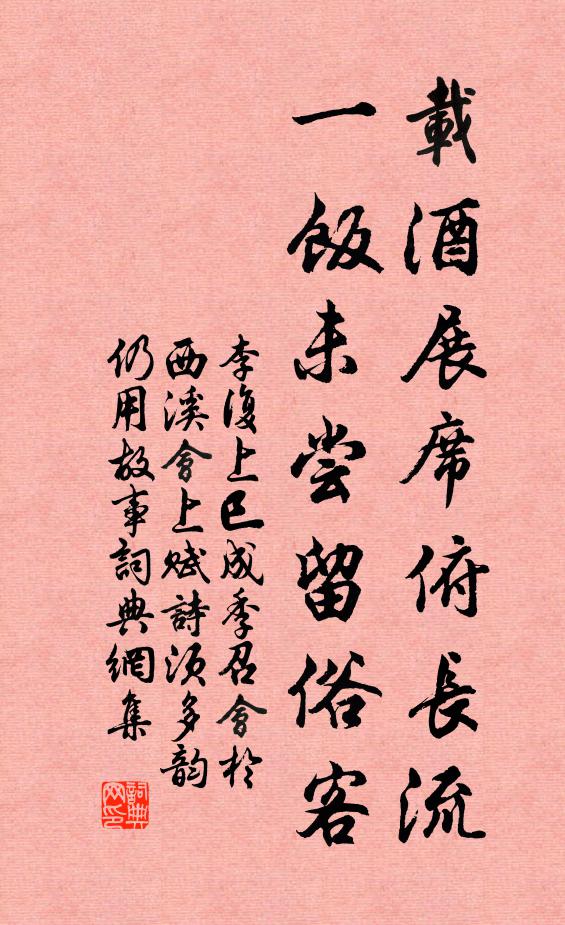 載酒展席俯長流
一飯未尝留俗客
李復上巳成季召會於
西溪會上賦詩須多韵
仍用故事詞典網集
詞典
网印